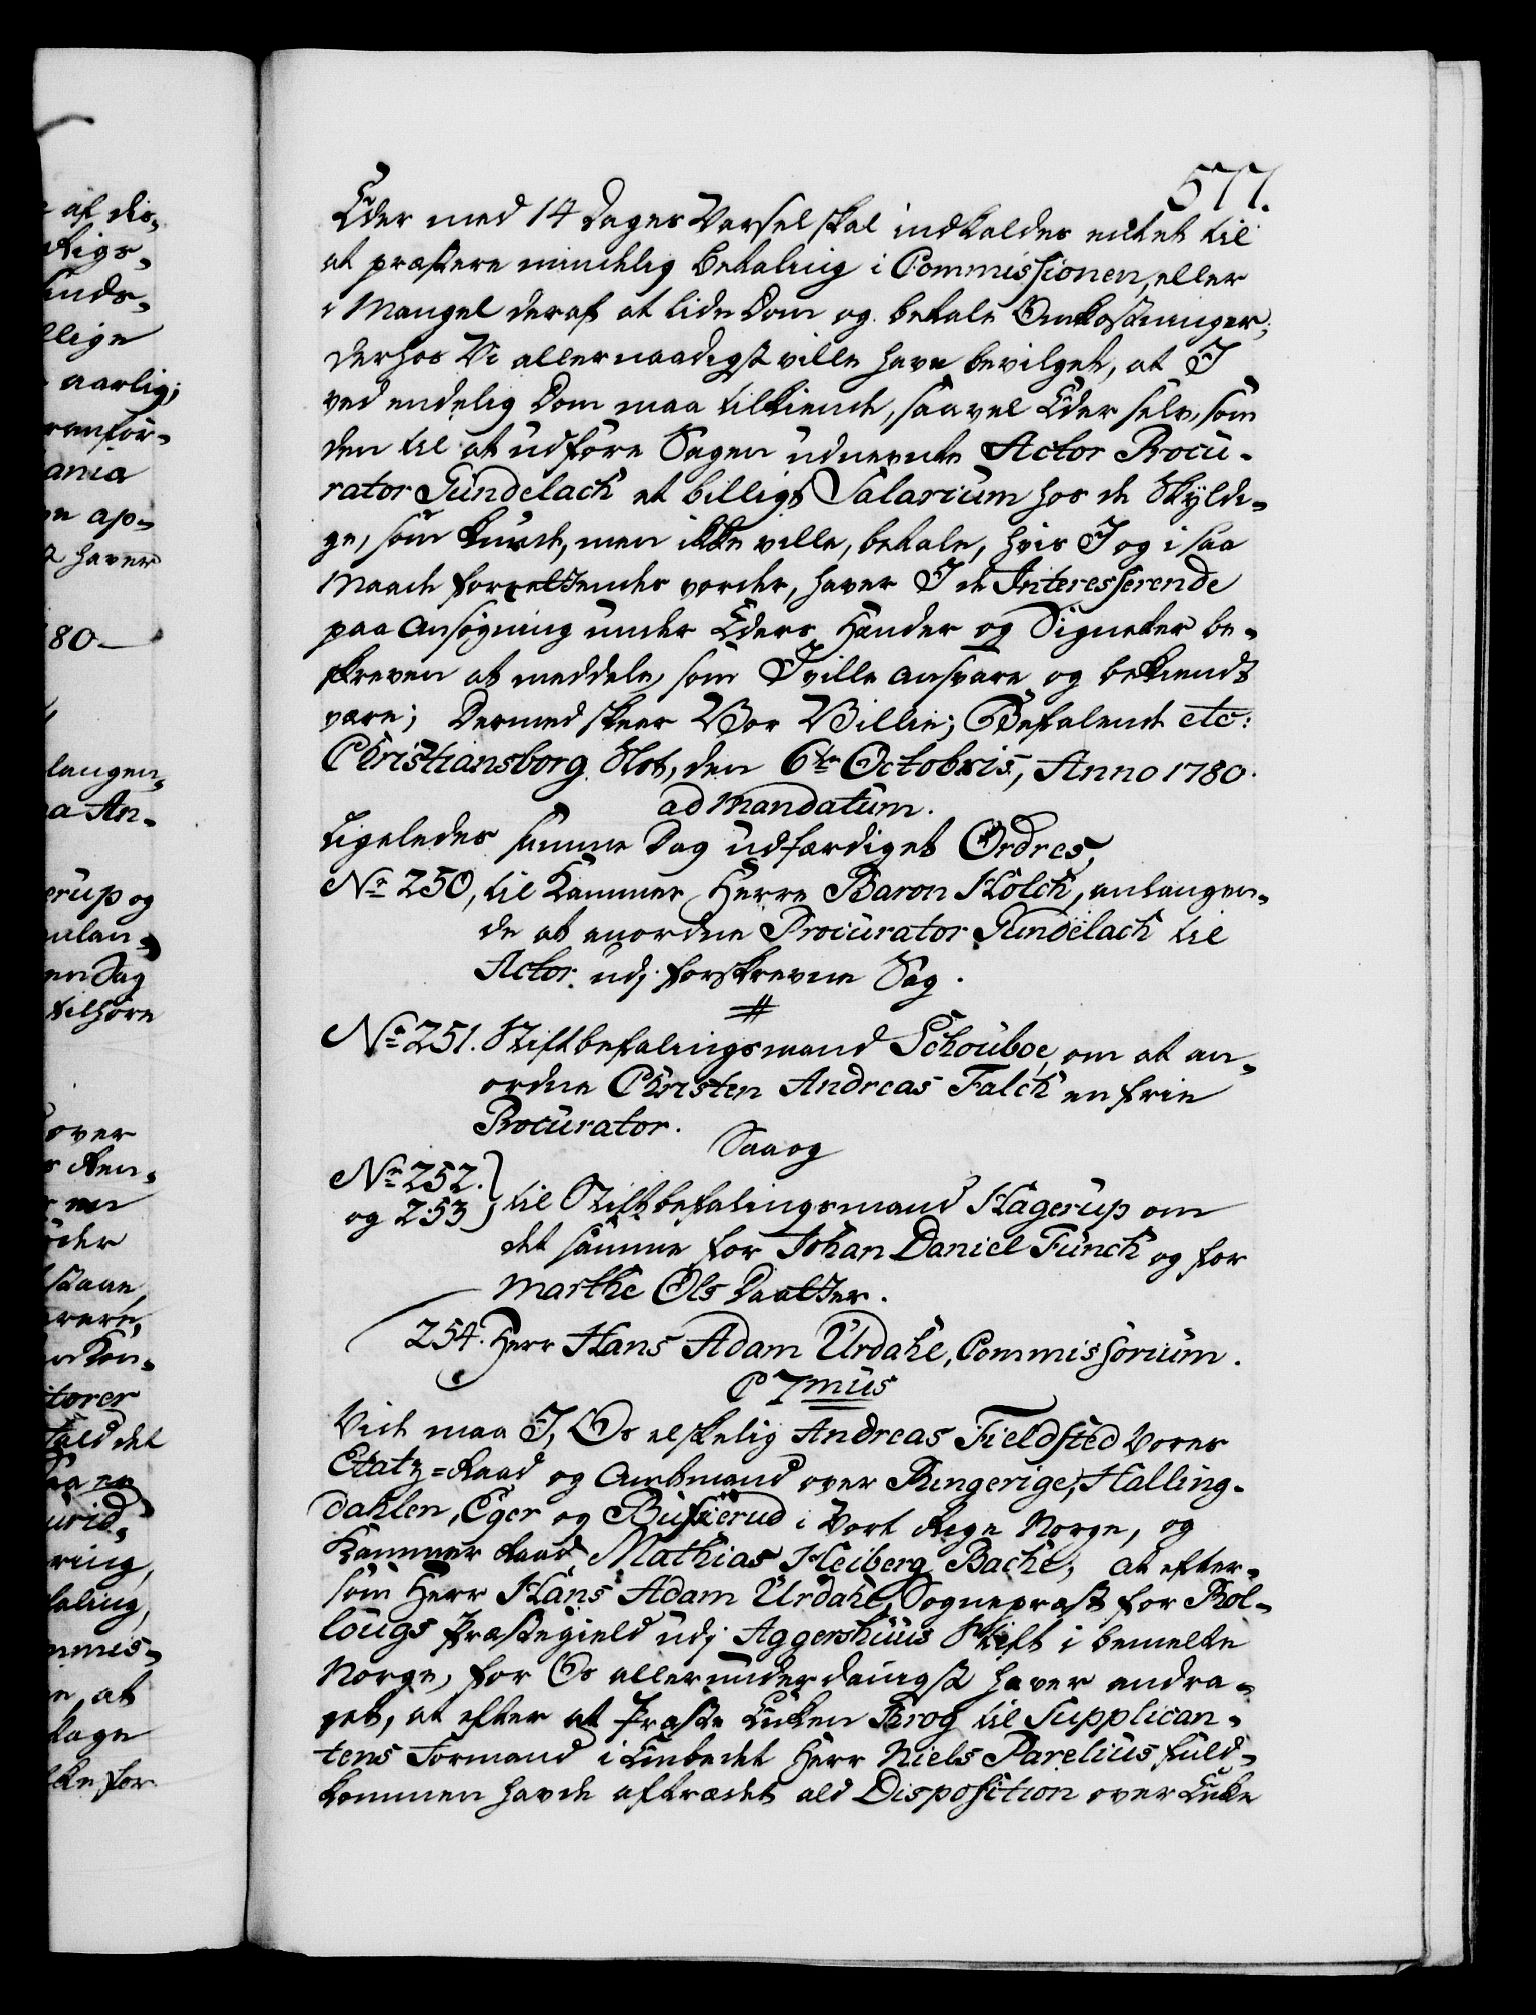 577.
Eder med 14 Dages Varsel skal indkaldes enten til
at præstere mindelig Betaling i Commissionen, eller
i Mangel deraf at lide Dom og betale Omkostninger;
derhos Vi allernaadigst ville have bevilget, at I
ved endelig Dom maa tilkiende, saavel Eder selv, som
den til at udføre Sagen udnævnte Actor Procu-
rator Gündelach et billigt Salarium hos de Skyldi-
ge, som kunde, men ikke ville, betale, hvis I og i saa
Maade forrettendes vorder, haver I de Interesserende
paa Ansøgning under Eders Hænder og Signeter be-
skreven at meddele, som I ville ansvare og bekiendt
være; Dermed skeer Vor Villie; Befalende etc:
Christiansborg Slot, den 6te Octobris, Anno 1780.
ad Mandatum.
Ligeledes samme Dag udfærdiget Ordres,
No 250, til Kammer Herre Baron Holck, anlangen-
de at anordne Procurator Gündelach til
Actor udj forskrevne Sag.
No 251. Stiftbefalingsmand Schouboe, om at an-
ordne Christen Andreas Falck en frie
Procurator.
Saa og
No 252.
og 253 } til Stiftbefalingsmand Hagerup om
det samme for Johan Daniel Funch og for
Marthe Ols Daatter.
254. Herr Hans Adam Urdahl, Commissorium.
C 7mus
Vide maa I, Os elskelig Andreas Fieldsted Vores
Etatz=Raad og Amtmand over Ringerige, Halling-
dahlen, Eger og Buskerud i Vort Rige Norge, og
Kammer Raad Mathias Heiberg Bache, at efter-
som Herr Hans Adam Urdahl, Sognepræst for Rol-
lougs Præstegield udj Aggershuus Stift i bemelte
Norge, for Os allerunderdanigst haver andra-
get, at efter at Præste Enken Krog til Supplican-
tens Formand i Embedet Herr Niels Parelius fuld-
kommen havde aftrædet ald Disposition over Enke